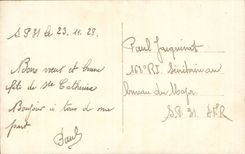 S.P. 31 le 23.11.28.
Bons vœux et bonne
fête de Ste Catherine
Bonjour à tous de ma
part
Paul
Paul Jacquinot
168° R.I. Secrétaire au
bureau du Major
S.P. 31